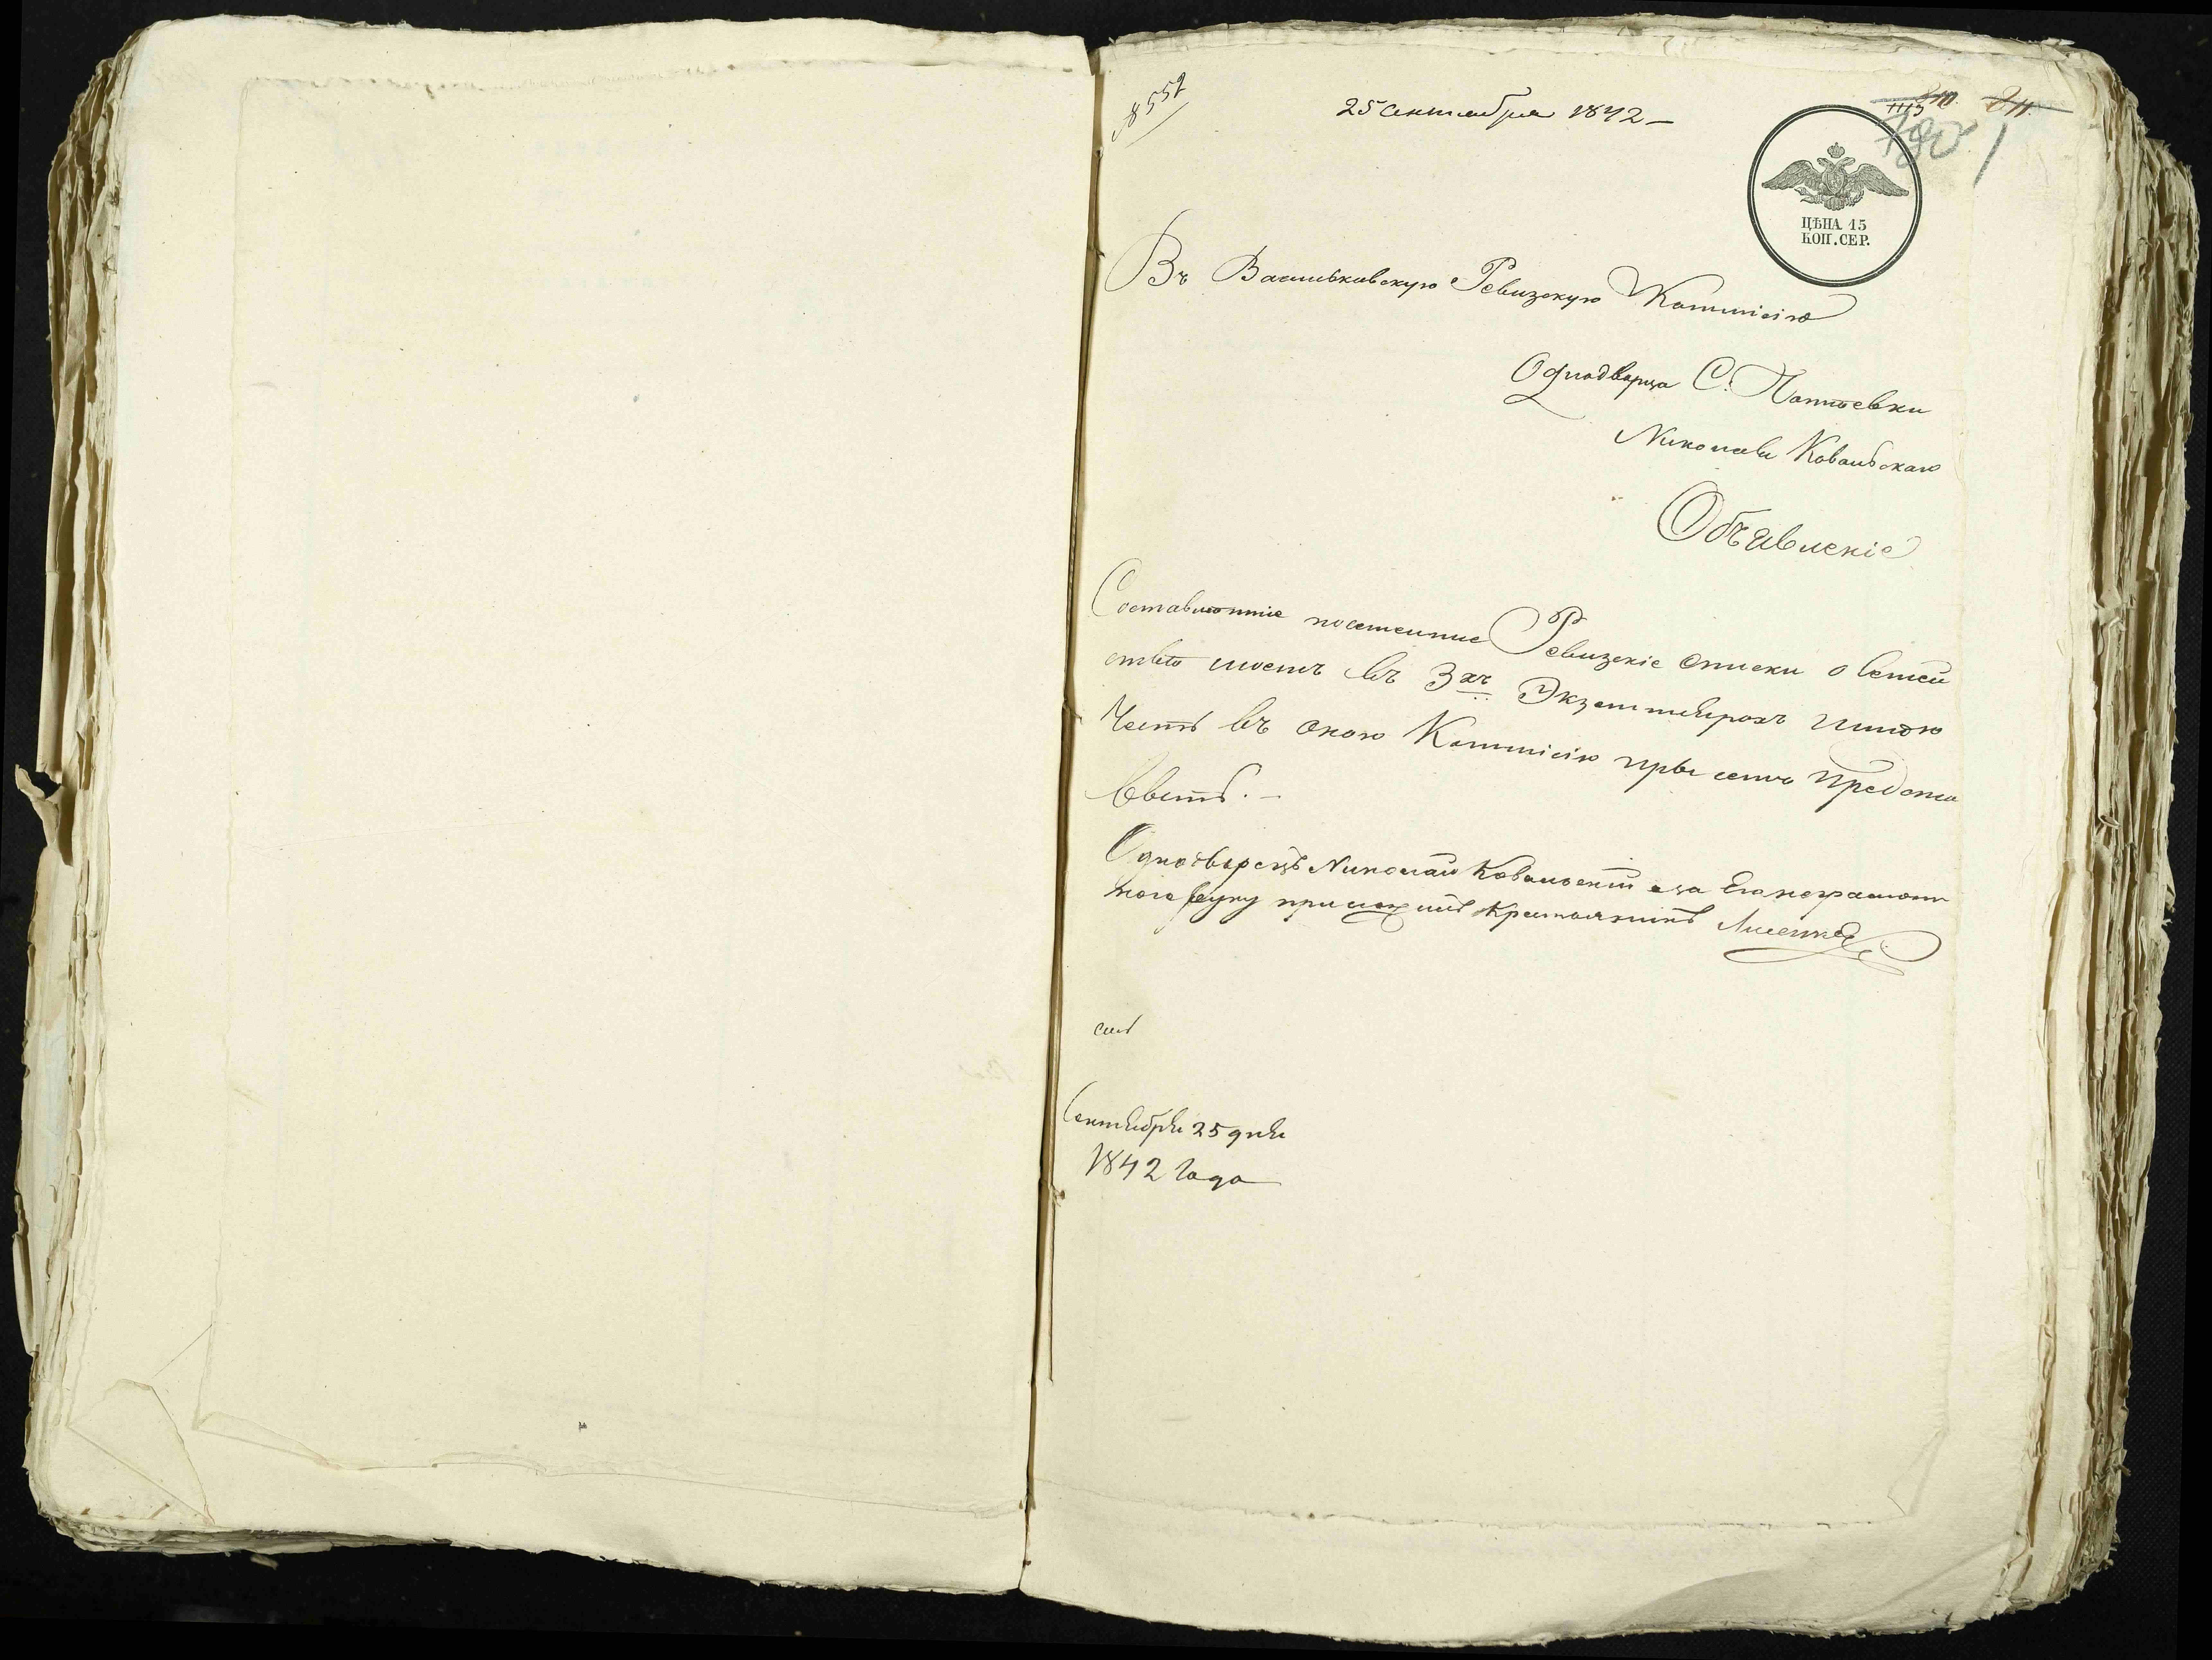 8552
25 Сентября 1842 –
ЦѢНА 15
КОП. СЕР.
Въ Васильковскую Ревизскую Коммисію
Однодворца С.
Николая Ковальскаго
Объявленіе
Составленніе посемейніе Ревизскіе списки о Семей
ствѣ моемъ въ 3хъ Экземплярахъ имѣю
Честь въ оную Коммисію при семъ Предста
вить. –
Однодворецъ Николай Ковальскій а за Его неграмотн
ного руку приложилъ Крестьянинъ
Сентября 25 дня
1842 Года